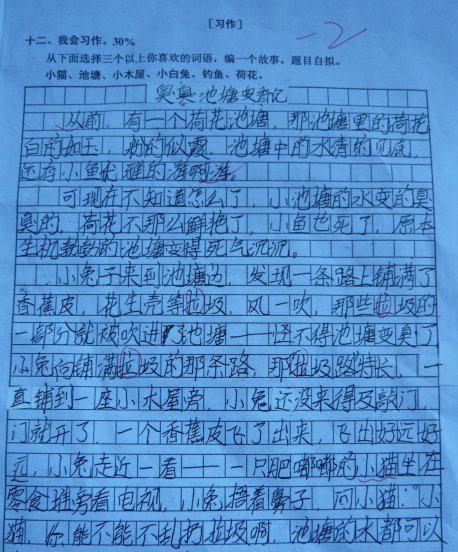 [习作]
十二、我会习作。30%
-2
从下面选择三个以上你喜欢的词语，编一个故事。题目自拟。
小猫、池塘、小木屋、小白兔、钓鱼、荷花。
臭臭池塘变香记
从前，有一个荷花池塘，那池塘里的荷花
白的如玉，粉的似霞，池塘中的水清的见底，
还有小鱼在
可现在不知道怎么了，小池塘的水变的臭
臭的，荷花不那么鲜艳了，小鱼也死了，原本
生机勃勃的池塘变得死气沉沉。
小兔子来到池塘边，发现一条路上铺满了
香蕉皮，花生壳等垃圾，风一吹，那些垃圾的
一部分就被吹进了池塘——怪不得池塘变臭了
小兔向铺满垃圾的那条路，那垃圾路特长，一
直铺到一座小木屋旁，小兔还没来得及敲门，
门就开了，一个香蕉皮飞了出来，飞出好远好
远，小兔走近一看——一只肥嘟嘟的小猫坐在
零食堆旁看电视，小兔捂着鼻子，问小猫：“小
猫，你能不能不乱扔垃圾啊，池塘的水都可以